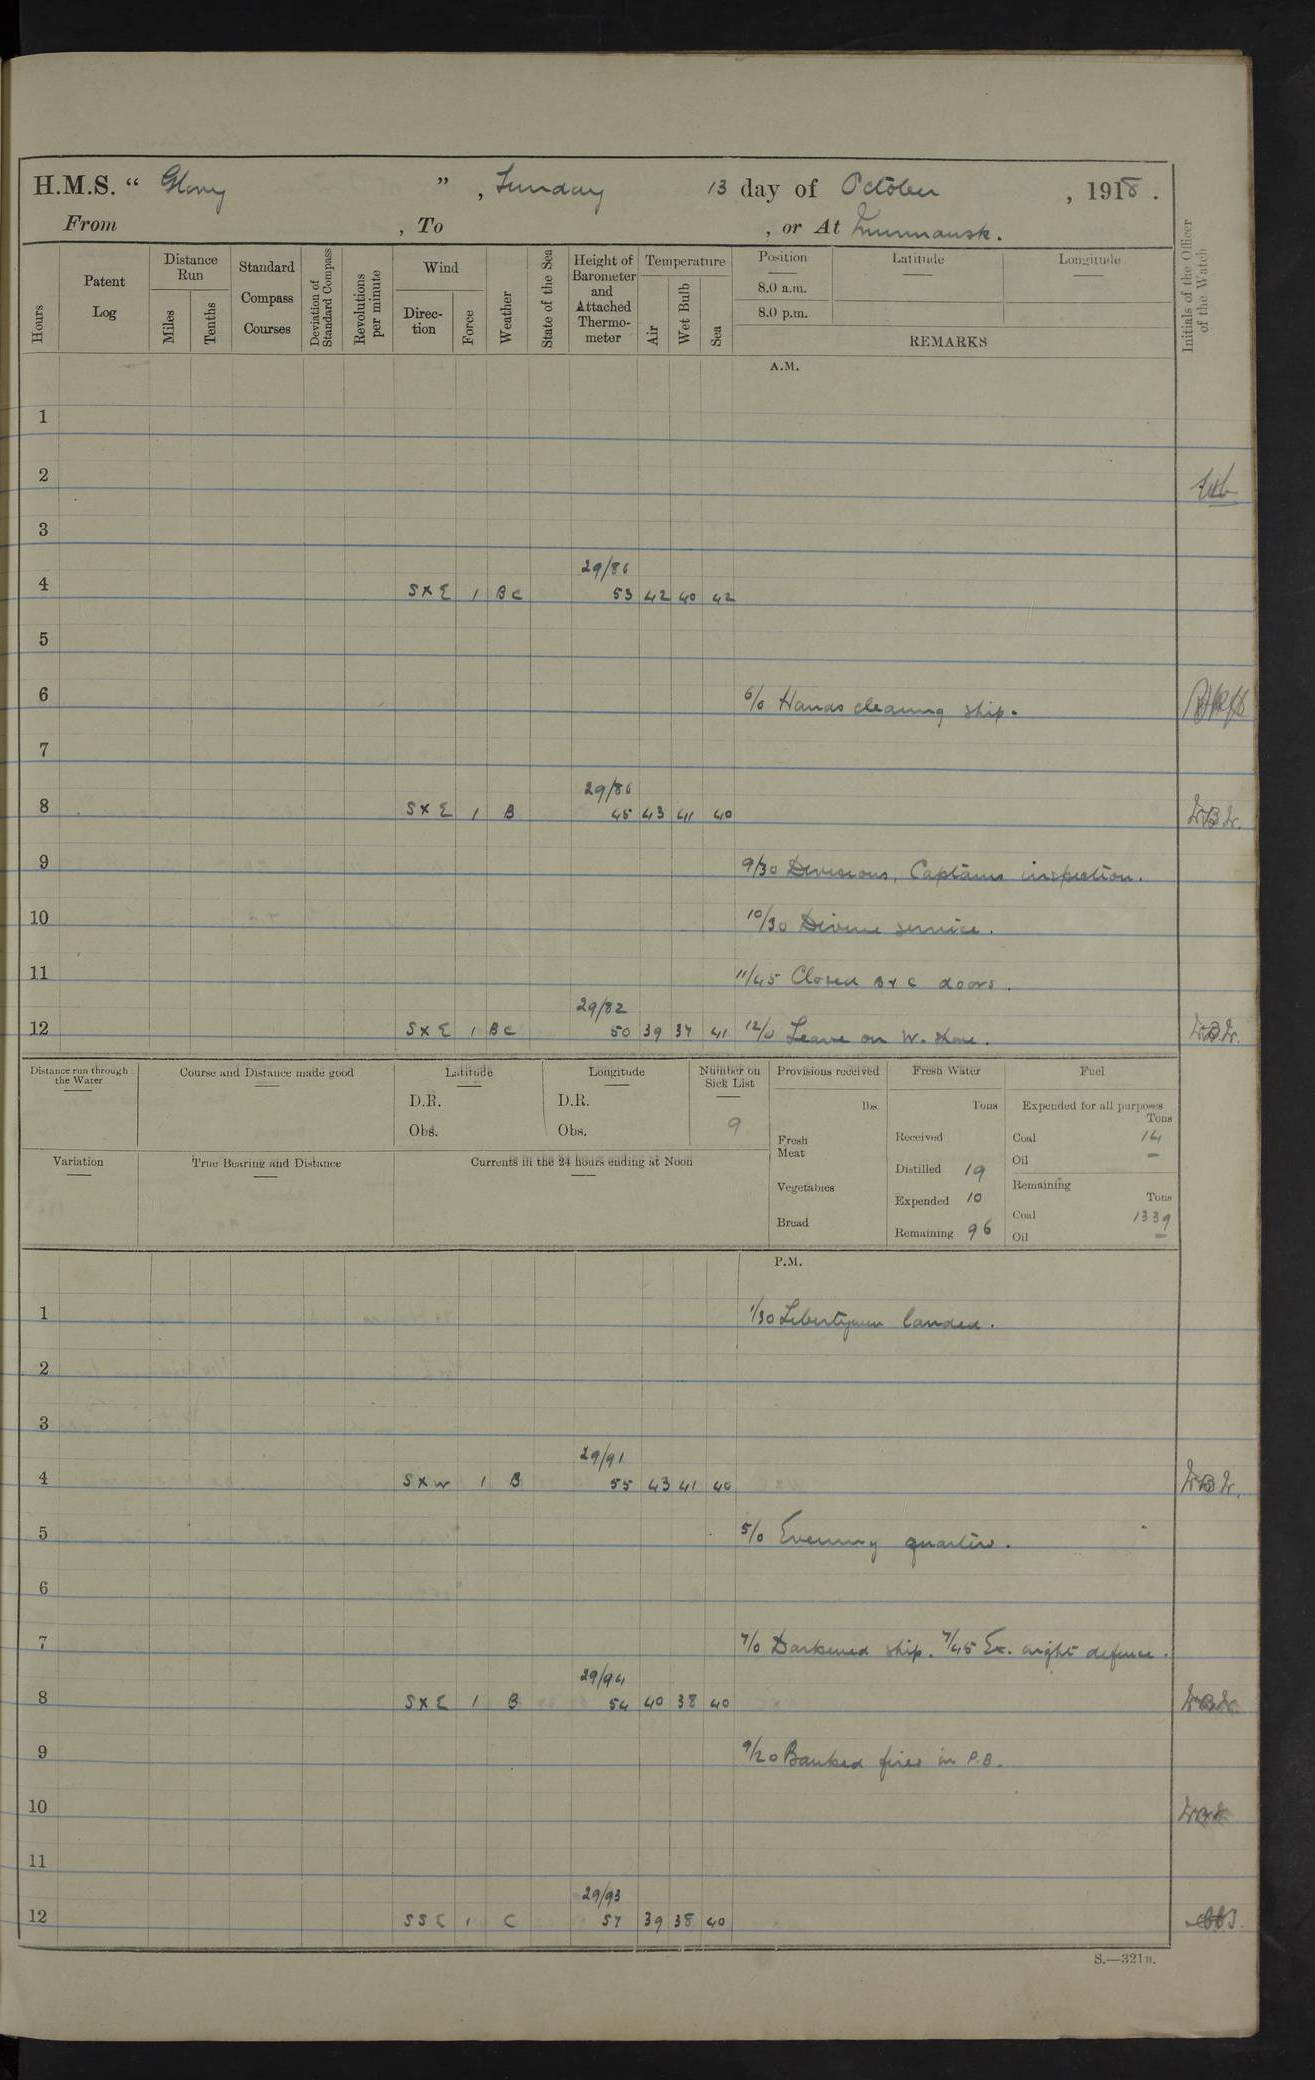 H.M.S. “ Glory ” , Sunday 13 day of October , 1918 .
From , To , or At Murmansk.
Hours
Patent Log
Distance Run
Miles
Tenths
Standard Compass Courses
Deviation of Standard Compass
Revolutions per minute
Wind
Direc-tion
Force
Weather
State of the Sea
Height of Barometer and Attached Thermo-meter
Temperature
Air
Wet Bulb
Sea
Position
8.0 a.m.
8.0 p.m.
Latitude
Longitude
REMARKS
Initials of the Officer of the Watch
A.M.
1
2
3
29/86
4 S x E 1 B C 53 42 40 42
5
6 6/0 Hands cleaning ship.
7
29/86
8 S x E 1 B 45 43 41 40 W.B.W.
9 9/30 Divisions, Captains inspection.
10 10/30 Divine service.
11 11/45 Closed B & C doors.
29/82
12 S x E 1 B C 50 39 37 41 12/0 Leave on W. Shore. W.B.W.
Distance run through the Water
Course and Distance made good
Latitude
D.R.
Obs.
Longitude
D.R.
Obs.
Number on Sick List
9
Provisions received
lbs.
Fresh Meat
Vegetables
Bread
Fresh Water
Tons
Received
Distilled 19
Expended 10
Remaining 96
Fuel
Expended for all purposes
Tons
Coal 14
Oil —
Remaining
Tons
Coal 1339
Oil —
Variation
True Bearing and Distance
Currents in the 24 hours ending at Noon
P.M.
1 1/30 Libertymen landed.
2
3
29/91
4 S x W 1 B 55 43 41 40 W.B.W.
5 5/0 Evening quarters.
6
7 7/0 Darkened ship. 7/45 Ex. night defence.
29/94
8 S x E 1 B 54 40 38 40 W.B.W.
9 9/20 Banked fires in P.B.
10 W.B.W.
11
29/93
12 S S E 1 C 57 39 38 40
S.—321B.